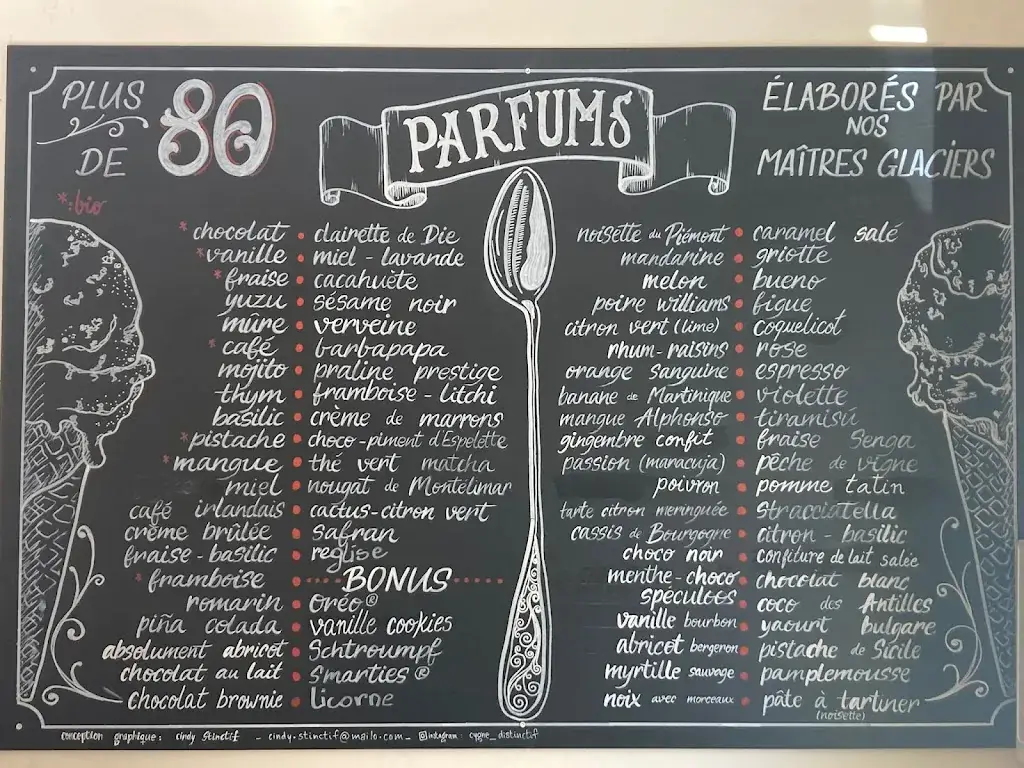 PLUS DE 80
PARFUMS
ÉLABORÉS PAR
NOS
MAÎTRES GLACIERS
*:bio
*chocolat • clairette de Die
*vanille • miel - lavande
*fraise • cacahuète
yuzu • sésame noir
mûre • verveine
*café • barbapapa
mojito • praline prestige
thym • framboise - litchi
basilic • crème de marrons
*pistache • choco-piment d'Espelette
*mangue • thé vert matcha
miel • nougat de Montélimar
café irlandais • cactus-citron vert
crème brûlée • safran
fraise-basilic • reglise
*framboise • BONUS
romarin • Oréo®
piña colada • vanille cookies
absolument abricot • Schtroumpf
chocolat au lait • Smarties®
chocolat brownie • licorne
noisette du Piémont • caramel salé
mandarine • griotte
melon • bueno
poire williams • figue
citron vert (lime) • coquelicot
rhum-raisins • rose
orange sanguine • espresso
banane de Martinique • violette
mangue Alphonso • tiramisú
gingembre confit • fraise Senga
passion (maracuja) • pêche de vigne
poivron • pomme tatin
tarte citron meringuée • stracciatella
cassis de Bourgogne • citron - basilic
choco noir • confiture de lait salée
menthe-choco • chocolat blanc
spéculoos • coco des Antilles
vanille bourbon • yaourt bulgare
abricot bergeron • pistache de Sicile
myrtille sauvage • pamplemousse
noix avec morceaux • pâte à tartiner
(noisette)
conception graphique: cindy Stinctif - cindy.stinctif@mailo.com - instagram: cygne_distinctif